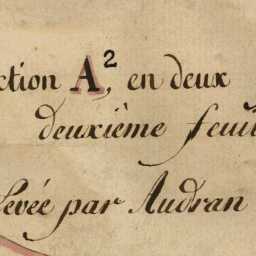 ction A², en deux
deuxième feuil
levée par Audran